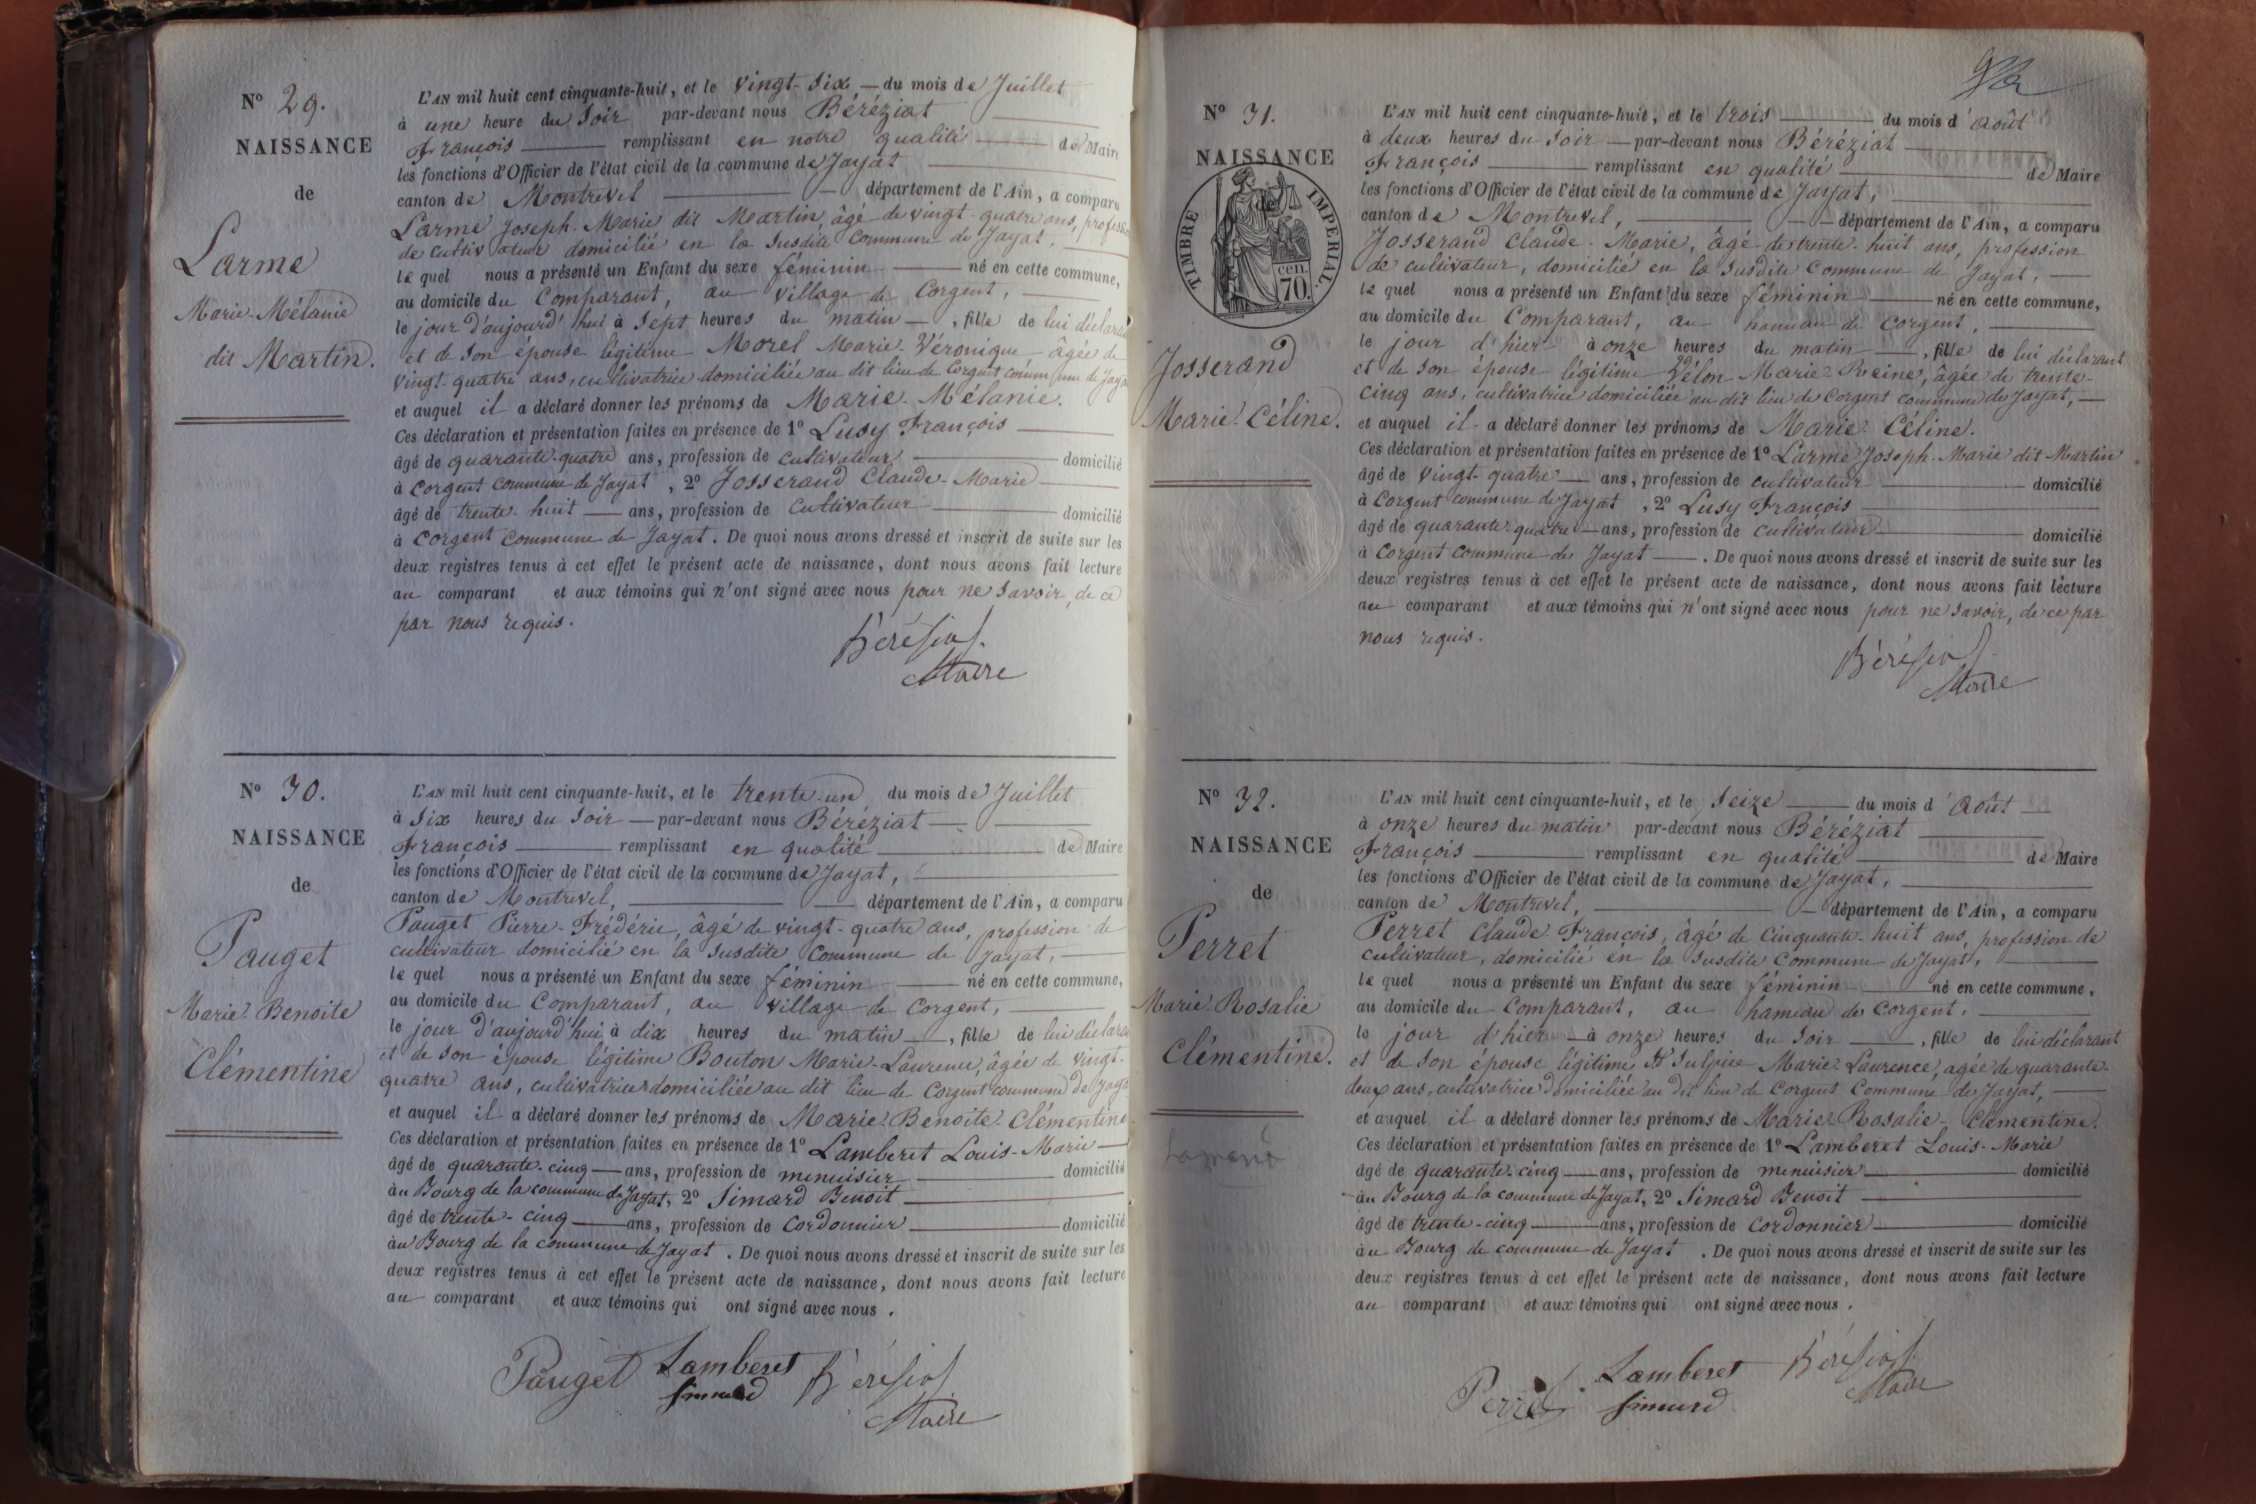 N° 29.
NAISSANCE
de
Larme
Marie-Mélanie
dit Martin.
L'AN mil huit cent cinquante-huit, et le vingt-six — du mois de Juillet
à une heure du soir par-devant nous Béréziat
François remplissant en notre qualité de Maire
les fonctions d'Officier de l'état civil de la commune de Jayat
canton de Montrevel département de l'Ain, a comparu
Larme Joseph-Marie dit Martin, âgé de vingt-quatre ans, profession
de cultivateur domicilié en la susdite commune de Jayat,
lequel nous a présenté un Enfant du sexe féminin né en cette commune,
au domicile du comparant, au village de Corgent,
le jour d'aujourd'hui à sept heures du matin —, fille de lui déclarant
et de son épouse légitime Morel Marie-Véronique âgée de
vingt-quatre ans, cultivatrice domiciliée au dit lieu de Corgent commune de Jayat
et auquel il a déclaré donner les prénoms de Marie-Mélanie.
Ces déclaration et présentation faites en présence de 1° Lusy François
âgé de quarante-quatre ans, profession de cultivateur domicilié
à Corgent commune de Jayat, 2° Josserand Claude-Marie
âgé de trente-huit — ans, profession de cultivateur domicilié
à Corgent commune de Jayat. De quoi nous avons dressé et inscrit de suite sur les
deux registres tenus à cet effet le présent acte de naissance, dont nous avons fait lecture
au comparant et aux témoins qui n'ont signé avec nous pour ne savoir, de ce
par nous requis.
Béréziat
Maire
N° 30.
NAISSANCE
de
Pauget
Marie-Benoite
Clémentine
L'AN mil huit cent cinquante-huit, et le trente-un du mois de Juillet
à six heures du soir — par-devant nous Béréziat
François remplissant en qualité de Maire
les fonctions d'Officier de l'état civil de la commune de Jayat,
canton de Montrevel, département de l'Ain, a comparu
Pauget Pierre-Frédéric, âgé de vingt-quatre ans, profession de
cultivateur domicilié en la susdite commune de Jayat,
lequel nous a présenté un Enfant du sexe féminin né en cette commune,
au domicile du comparant, au village de Corgent,
le jour d'aujourd'hui à dix heures du matin —, fille de lui déclarant
et de son épouse légitime Bouton Marie-Laurence, âgée de vingt-
quatre ans, cultivatrice domiciliée au dit lieu de Corgent commune de Jayat
et auquel il a déclaré donner les prénoms de Marie-Benoite-Clémentine
Ces déclaration et présentation faites en présence de 1° Lamberet Louis-Marie
âgé de quarante-cinq — ans, profession de menuisier domicilié
au Bourg de la commune de Jayat, 2° Simard Benoit
âgé de trente-cinq — ans, profession de cordonnier domicilié
au Bourg de la commune de Jayat. De quoi nous avons dressé et inscrit de suite sur les
deux registres tenus à cet effet le présent acte de naissance, dont nous avons fait lecture
au comparant et aux témoins qui ont signé avec nous.
Pauget Lamberet Béréziat
Simard
Maire
N° 31.
NAISSANCE
TIMBRE IMPERIAL.
cen.
70.
Josserand
Marie-Céline.
L'AN mil huit cent cinquante-huit, et le trois du mois d'août
à deux heures du soir — par-devant nous Béréziat
François remplissant en qualité de Maire
les fonctions d'Officier de l'état civil de la commune de Jayat,
canton de Montrevel, département de l'Ain, a comparu
Josserand Claude-Marie, âgé de trente-huit ans, profession
de cultivateur, domicilié en la susdite commune de Jayat,
lequel nous a présenté un Enfant du sexe féminin né en cette commune,
au domicile du comparant, au hameau de Corgent,
le jour d'hier à onze heures du matin —, fille de lui déclarant
et de son épouse légitime Vélon Marie-Reine, âgée de trente-
cinq ans, cultivatrice domiciliée au dit lieu de Corgent commune de Jayat,
et auquel il a déclaré donner les prénoms de Marie-Céline.
Ces déclaration et présentation faites en présence de 1° Larme Joseph-Marie dit Martin
âgé de vingt-quatre — ans, profession de cultivateur domicilié
à Corgent commune de Jayat, 2° Lusy François
âgé de quarante-quatre — ans, profession de cultivateur domicilié
à Corgent commune de Jayat —. De quoi nous avons dressé et inscrit de suite sur les
deux registres tenus à cet effet le présent acte de naissance, dont nous avons fait lecture
au comparant et aux témoins qui n'ont signé avec nous pour ne savoir, de ce par
nous requis.
Béréziat
Maire
N° 32.
NAISSANCE
de
Perret
Marie-Rosalie
Clémentine.
L'AN mil huit cent cinquante-huit, et le seize — du mois d'août —
à onze heures du matin par-devant nous Béréziat
François remplissant en qualité de Maire
les fonctions d'Officier de l'état civil de la commune de Jayat,
canton de Montrevel, département de l'Ain, a comparu
Perret Claude-François, âgé de cinquante-huit ans, profession de
cultivateur, domicilié en la susdite commune de Jayat,
lequel nous a présenté un Enfant du sexe féminin né en cette commune,
au domicile du comparant, au hameau de Corgent,
le jour d'hier à onze heures du soir —, fille de lui déclarant
et de son épouse légitime St Sulpice Marie-Laurence, âgée de quarante-
deux ans, cultivatrice domiciliée au dit lieu de Corgent commune de Jayat,
et auquel il a déclaré donner les prénoms de Marie-Rosalie-Clémentine.
Ces déclaration et présentation faites en présence de 1° Lamberet Louis-Marie
âgé de quarante-cinq — ans, profession de menuisier domicilié
au Bourg de la commune de Jayat, 2° Simard Benoit
âgé de trente-cinq — ans, profession de cordonnier domicilié
au Bourg de commune de Jayat. De quoi nous avons dressé et inscrit de suite sur les
deux registres tenus à cet effet le présent acte de naissance, dont nous avons fait lecture
au comparant et aux témoins qui ont signé avec nous.
Perret Lamberet Béréziat
Simard
Maire